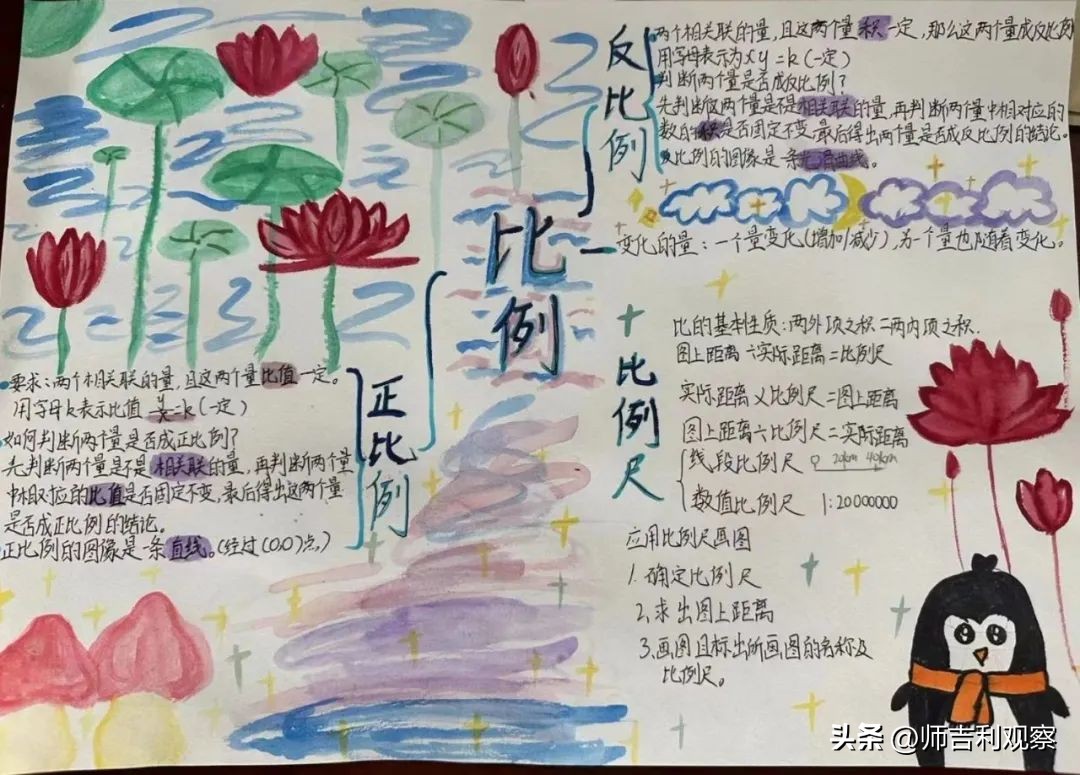 比例
反比例
两个相关联的量，且这两个量积一定，那么这两个量成反比例
用字母表示为xy=k(一定)
判断两个量是否成反比例？
先判断这两个量是不是相关联的量，再判断两个量中相对应的
数的积是否固定不变，最后得出两个量是否成反比例的结论。
反比例的图像是一条光滑曲线。
变化的量：一个量变化(增加/减少)，另一个量也随着变化。
正比例
要求：两个相关联的量，且这两个量比值一定。
用字母k表示比值 y/x=k(一定)
如何判断两个量是否成正比例？
先判断两个量是不是相关联的量，再判断两个量
中相对应的比值是否固定不变，最后得出这两个量
是否成正比例的结论。
正比例的图像是一条直线。(经过(0,0)点。)
比例尺
比的基本性质：两外项之积=两内项之积.
图上距离÷实际距离=比例尺
实际距离×比例尺=图上距离
图上距离÷比例尺=实际距离
线段比例尺 0 20km 40km
数值比例尺 1:20000000
应用比例尺画图
1.确定比例尺
2.求出图上距离
3.画图且标出所画图的名称及
比例尺。
头条 @师吉利观察